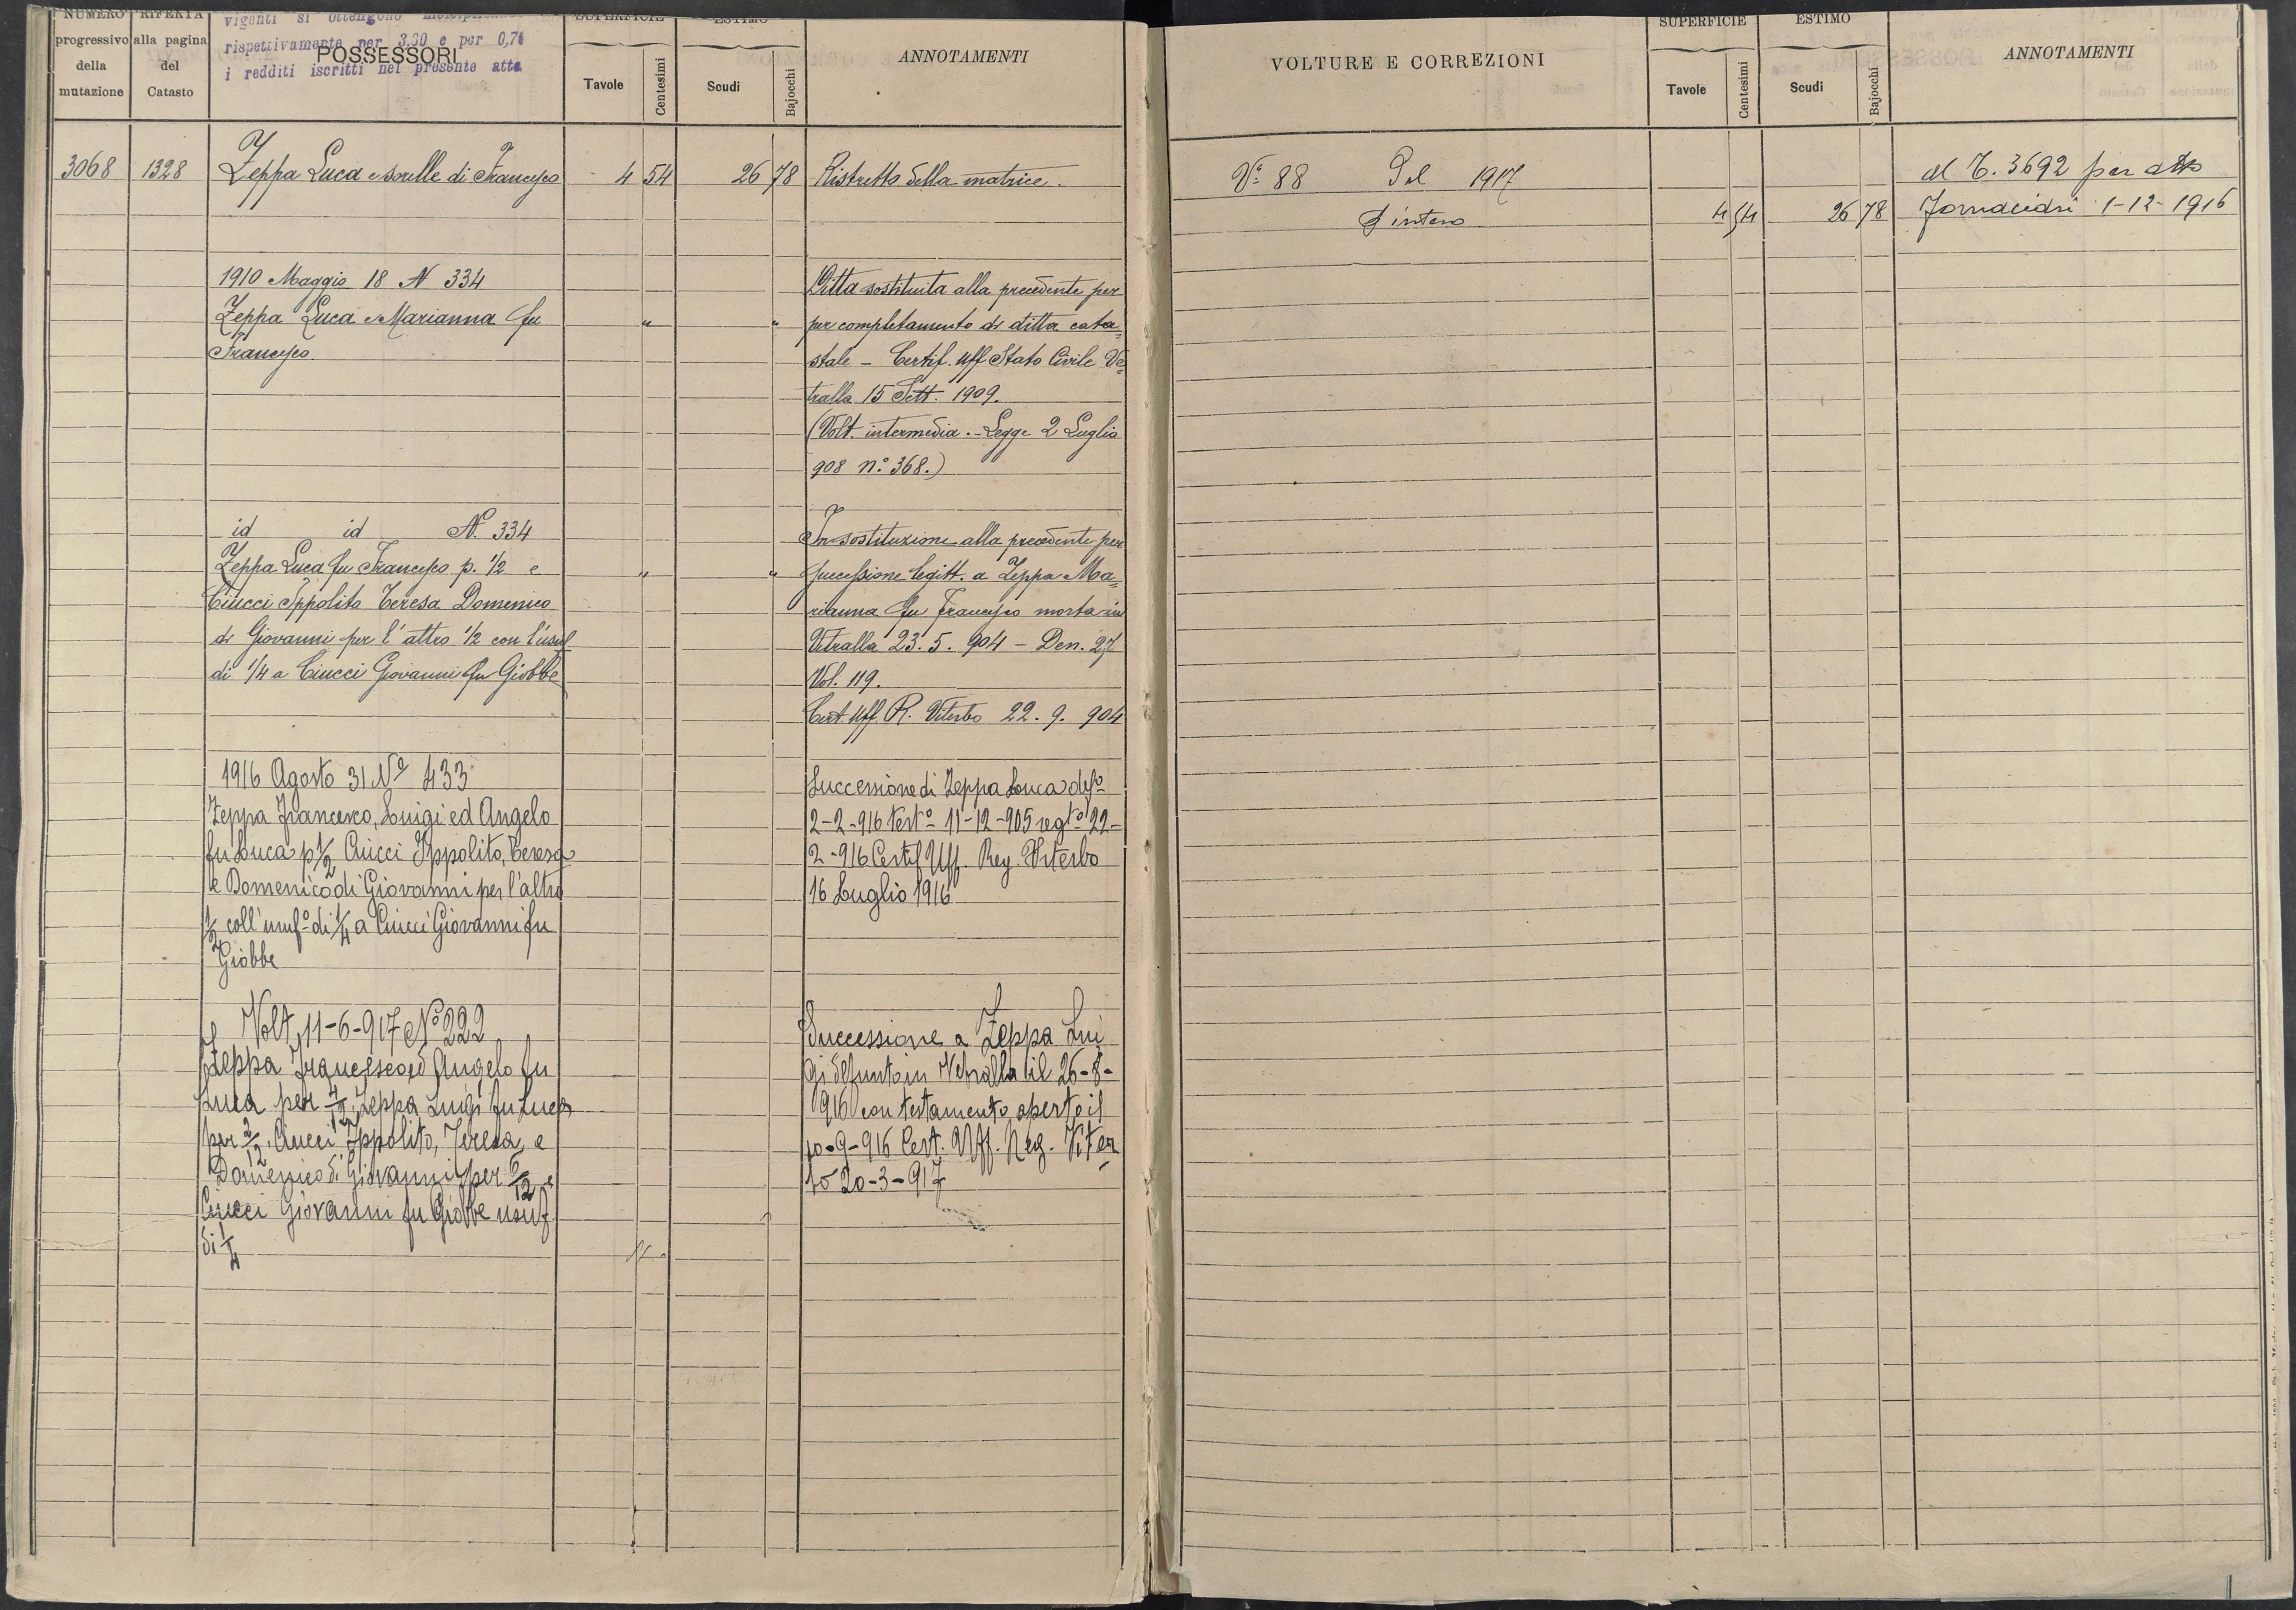 NUMERO
progressivo
della
mutazione
RIFERTA
alla pagina
del
Catasto
vigenti si ottengono
rispettivamente per 3,30 e per 0,71
i redditi iscritti nel presente atto
POSSESSORI
SUPERFICIE
Tavole
Centesimi
ESTIMO
Scudi
Bajocchi
ANNOTAMENTI
3068 1328 Zeppa Luca e sorelle di Francesco 4 54 26 78 Ristretto della matrice.
1910 Maggio 18 N 334
Zeppa Luca e Marianna fu " "
Francesco
Ditta sostituita alla precedente per
per completamento di ditta cata=
stale – Certif. Uff Stato Civile Ve=
tralla 15 Sett. 1909.
(Volt. intermedia. – Legge 2 Luglio
908 n.° 368.)
id id N. 334
Zeppa Luca fu Francesco p. 1/2 e " "
Ciucci Ippolito Teresa Domenico
di Giovanni per l'altro 1/2 con l'usuf
di 1/4 a Ciucci Giovanni fu Giobbe
In sostituzione alla precedente per
successione legitt. a Zeppa Ma=
rianna fu Francesco morta in
Vetralla 23. 5. 904 – Den. 27
Vol. 119.
Cert. Uff. R. Viterbo 22. 9. 904
1916 Agosto 31 N° 433
Zeppa Francesco, Luigi ed Angelo
fu Luca p 1/2 Ciucci Ippolito, Teresa
e Domenico di Giovanni per l'altro
1/2 coll'usuf° di 1/4 a Ciucci Giovanni fu
Giobbe
Successione di Zeppa Luca def°
2-2-916 test° 11-12-905 reg°to 22-
2-916 Certif Uff. Reg. Viterbo
16 Luglio 1916
Volt. 11-6-917 N° 222
Zeppa Francesco ed Angelo fu
Luca per 4/12, Zeppa Luigi fu Luca
per 2/12, Ciucci Ippolito, Teresa, e
Domenico di Giovanni per 6/12 e
Ciucci Giovanni fu Giobbe usuf.
di 1/4
Successione a Zeppa Lui
gi defunto in Vetralla il 26-8-
916 con testamento aperto il
10-9-916 Cert. Uff. Reg. Viter
bo 20-3-917
VOLTURE E CORREZIONI
SUPERFICIE
Tavole
Centesimi
ESTIMO
Scudi
Bajocchi
ANNOTAMENTI
V. 88 Del 1917 al T. 3692 per atto
L'intero 4 54 26 78 Fornaciari 1-12-1916